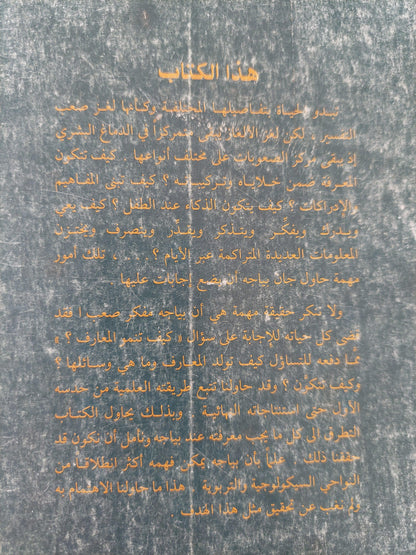 هذا الكتاب
تبدو الحياة بتفاصيلها المختلفة وكأنها لغز صعب
التفسير ، لكن لغز الألغاز يبقى متمركزاً في الدماغ البشري
إذ يبقى مركز الصعوبات على مختلف أنواعها . كيف تتكون
المعرفة ضمن خلاياه وتركيباته ؟ كيف تبنى المفاهيم
والإدراكات ؟ كيف يتكون الذكاء عند الطفل ؟ كيف يعي
ويدرك ويفكّر ويتذكر ويقدّر ويتصرف ويختزن
المعلومات العديدة المتراكمة عبر الأيام ؟ . . . ، تلك أمور
مهمة حاول جان بياجه أن يضع إجابات عليها
ولا ننكر حقيقة مهمة هي أن بياجه مفكر صعب إذ فقد
قضى كل حياته للإجابة على سؤال « كيف تنمو المعارف ؟ »
مما دفعه للتساؤل كيف تولد المعارف وما هي وسائلها ؟
وكيف تتكون ؟ وقد حاولنا تتبع طريقته العلمية من حدسه
الأول حتى استنتاجاته النهائية . وبذلك يحاول الكتاب
التطرق إلى كل ما يجب معرفته عند بياجه ونأمل أن نكون قد
حققنا ذلك . علماً بأن بياجه يمكن فهمه أكثر انطلاقاً من
النواحي السيكولوجية والتربوية . هذا ما حاولنا الاهتمام به
ولم نغب عن تحقيق مثل هذا الهدف